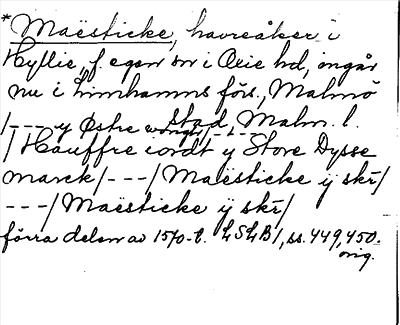 *Maësticke, havreåker i
Hyllie, f. egen sn i Oxie hd, ingår
nu i Limhamns förs., Malmö
stad, Malm. l.
/---y Østre wonge/---
/Hauffre iordt y Store Dysse
marck/---/Maësticke ÿ skr/
---/Maësticke ÿ skr/
förra delen av 1570-t. LSLB1, ss. 449, 450.
orig.